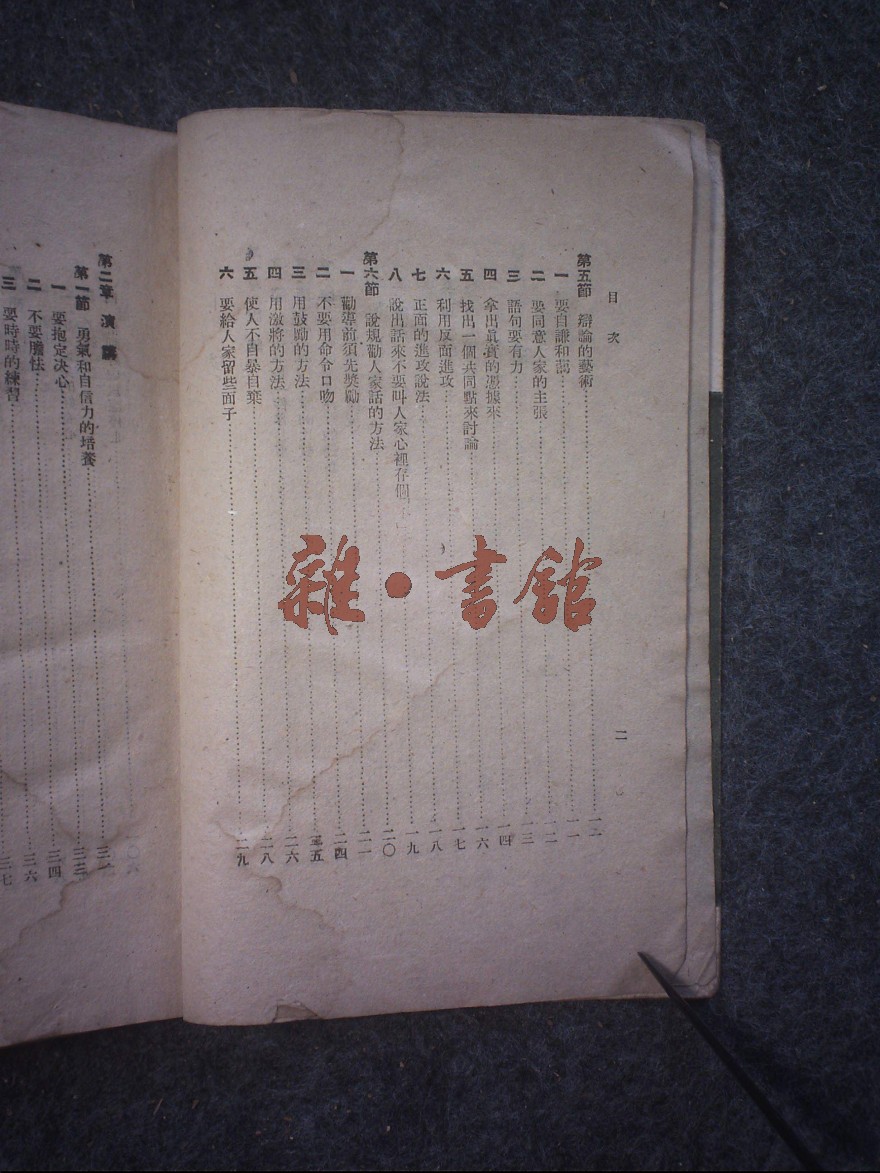 目次
二
第五節 辯論的藝術……一一
一 要自謙和藹……一一
二 要同意人家的主張……一二
三 語句要有力……一三
四 拿出眞實的憑據來……一四
五 找出一個共同點來討論……一六
六 利用反面進攻……一七
七 正面的進攻說法……一八
八 說出話來不要叫人家心裡存個……一九
第六節 說規勸人家話的方法……二〇
一 勸導前須先獎勵
二 不要用命令口吻……二四
三 用鼓勵的方法……二五
四 用激將的方法……二六
五 使人不自暴自棄……二八
六 要給人家留些面子……二九
第二章 演講……三一
第一節 勇氣和自信力的培養……三三
一 要抱定决心……三四
二 不要膽怯……三六
三 要時時的練習……三七
雜•書館